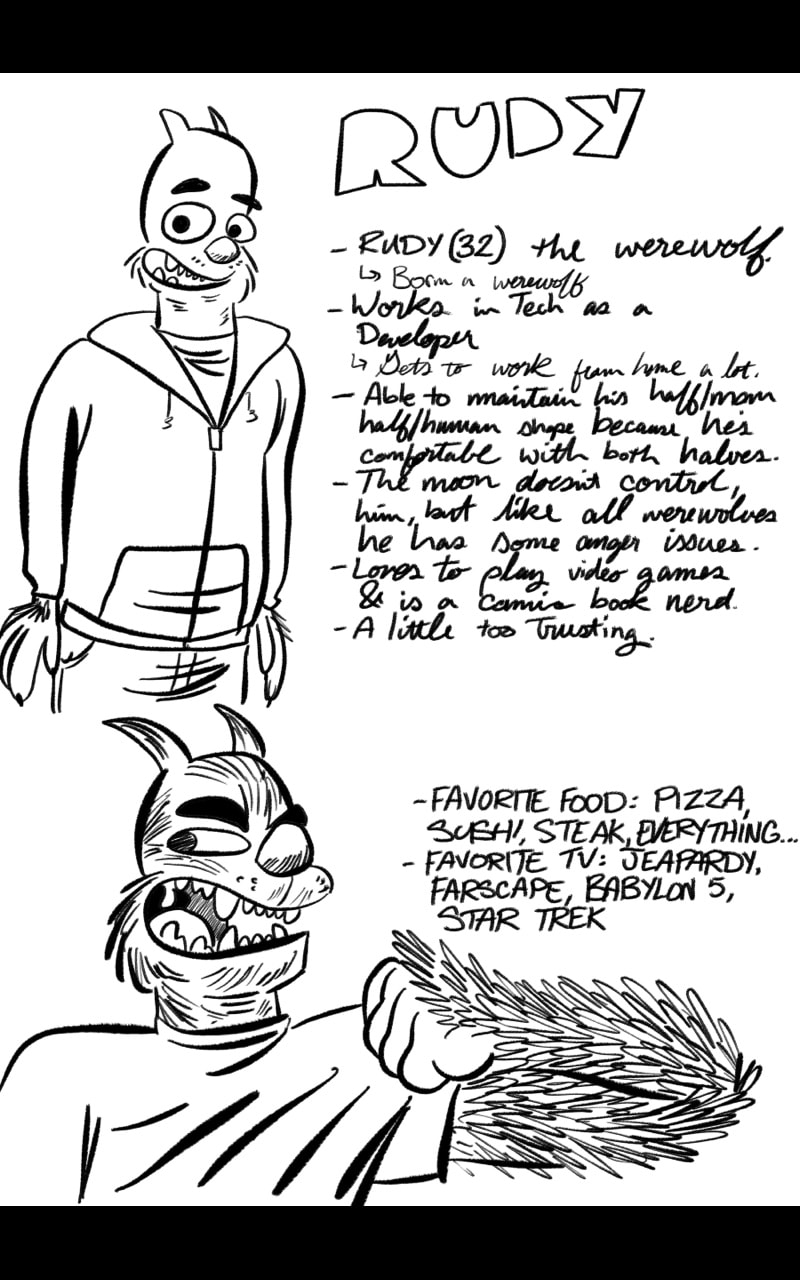 RUDY
- RUDY (32) the werewolf.
↳ Born a werewolf
- Works in Tech as a
Developer
↳ Gets to work from home a lot.
- Able to maintain his half/mom
half/human shape because he's
comfortable with both halves.
- The moon doesn't control,
him, but like all werewolves
he has some anger issues.
- Loves to play video games
& is a comic book nerd.
- A little too Trusting.
- FAVORITE FOOD: PIZZA,
SUSHI, STEAK, EVERYTHING...
- FAVORITE TV: JEAPARDY,
FARSCAPE, BABYLON 5,
STAR TREK